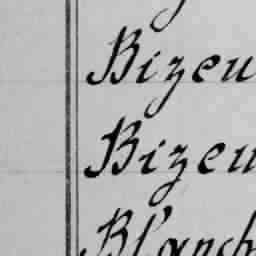 Bizeu
Bizeu
Blanch